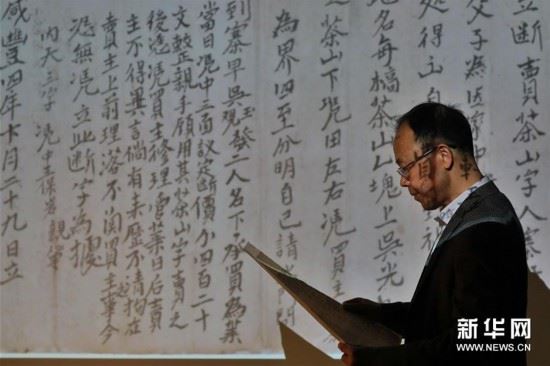 立断賣茶山字人
父子為因家中
处得土名
地名每槁茶山一塊上吳光
茶山下凭田左右凭買主
為界四至分明自己請
到寨早吳 發二人名下承買為業
當日凭中三面議定断價 四百二十
文整親手領用其茶山字賣之
後 凭買主修理管業日后賣
主不得異言倘有來歷不清拘在
賣主上前理落不関買主事今
恐無凭立此断字為據
内天三字 凭中 親筆
咸豐四年 月二十九日立
新华网
WWW.NEWS.CN